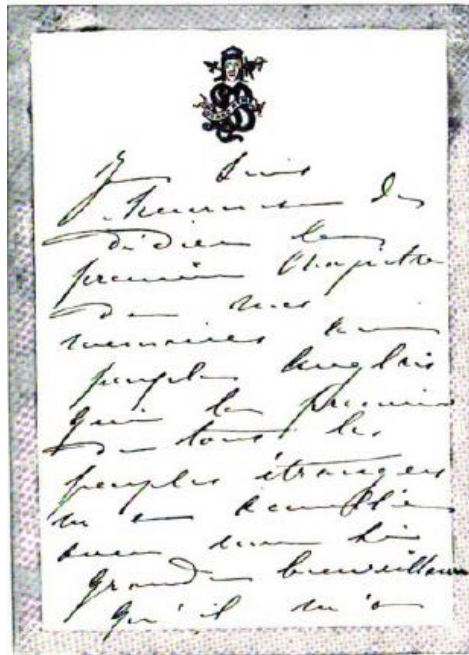 Je suis
heureuse de
dédier le
premier Chapitre
de mes
memoires au
peuple Anglais
qui le premier
de tous les
peuples étrangers
m'a accueillie
avec une si
grande bienveillance
qu'il m'a